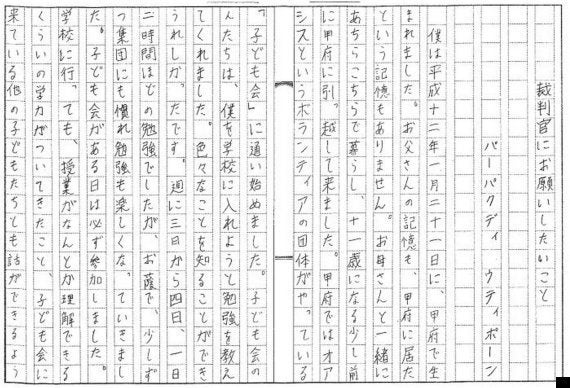 裁判官にお願いしたいこと
バーパクディ　ウティポーン
僕は平成十二年一月二十一日に、甲府で生
まれました。お父さんの記憶も、甲府に居た
という記憶もありません。お母さんと一緒に
あちらこちらで暮らし、十一歳になる少し前
に甲府に引っ越して来ました。甲府ではオア
シスというボランティアの団体がやっている
「子ども会」に通い始めました。子ども会の
人たちは、僕を学校に入れようと勉強を教え
てくれました。色々なことを知ることができ
うれしかったです。週に三日から四日、一日
二時間ほどの勉強でしたが、お蔭で、少しず
つ集団にも慣れ勉強も楽しくなっていきまし
た。子ども会がある日は必ず参加しました。
学校に行っても、授業がなんとか理解できる
くらいの学力がついてきたこと、子ども会に
来ている他の子どもたちとも話ができるよう